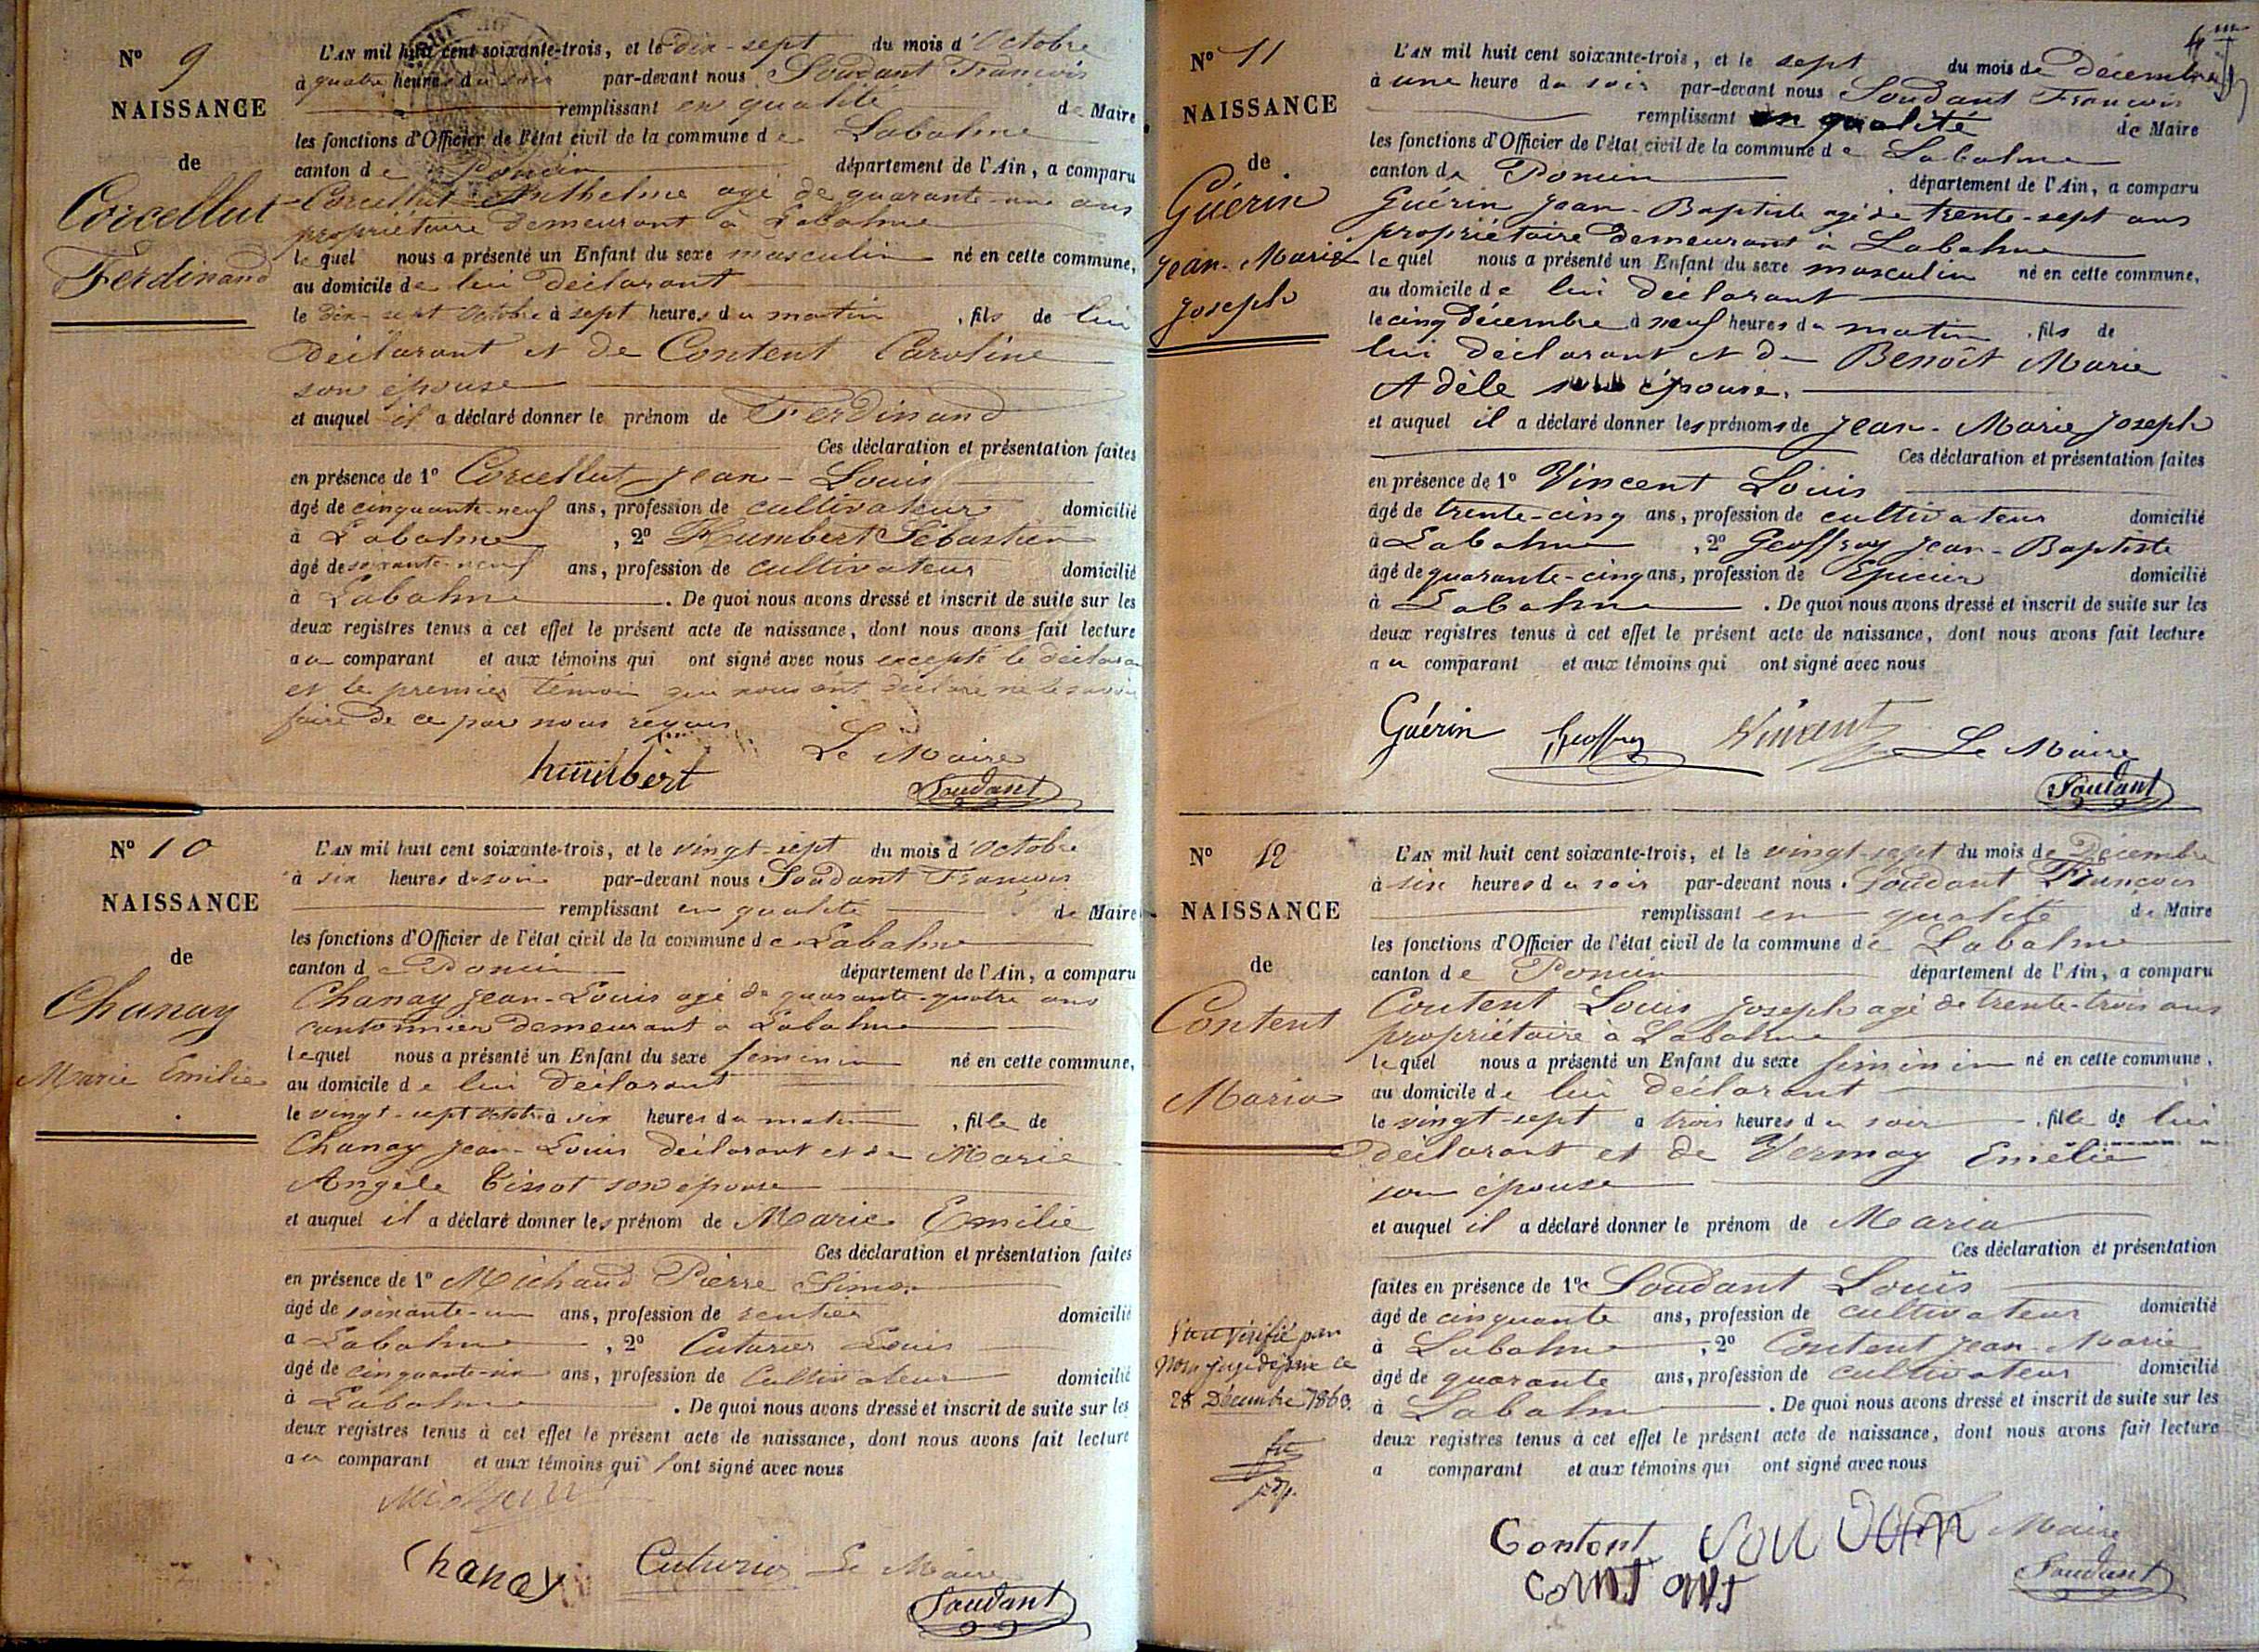 N° 9
NAISSANCE
de
Corcellut
Ferdinand
L'AN mil huit cent soixante-trois, et le dix-sept du mois d'Octobre
à quatre heures du soir par-devant nous Soudant François
remplissant en qualité de Maire
les fonctions d'Officier de l'état civil de la commune de Labalme
canton de Poncin département de l'Ain, a comparu
Corcellut Anthelme agé de quarante-un ans
propriétaire demeurant à Labalme
lequel nous a présenté un Enfant du sexe masculin né en cette commune,
au domicile de lui déclarant
le dix-sept Octobre à sept heures du matin, fils de lui
déclarant et de Content Caroline
son épouse
et auquel il a déclaré donner le prénom de Ferdinand
Ces déclaration et présentation faites
en présence de 1° Corcellut Jean-Louis
âgé de cinquante-neuf ans, profession de cultivateur domicilié
à Labalme, 2° Humbert Sébastien
âgé de soixante-neuf ans, profession de cultivateur domicilié
à Labalme. De quoi nous avons dressé et inscrit de suite sur les
deux registres tenus à cet effet le présent acte de naissance, dont nous avons fait lecture
au comparant et aux témoins qui ont signé avec nous excepté le déclarant
et le premier témoin qui nous ont déclaré ne le savoir
faire de ce par nous requis
Le Maire
humbert Soudant
N° 10
NAISSANCE
de
Chanay
Marie Emilie
L'AN mil huit cent soixante-trois, et le vingt-sept du mois d'Octobre
à six heures du soir par-devant nous Soudant François
remplissant en qualité de Maire
les fonctions d'Officier de l'état civil de la commune de Labalme
canton de Poncin département de l'Ain, a comparu
Chanay Jean-Louis agé de quarante-quatre ans
cantonnier demeurant à Labalme
lequel nous a présenté un Enfant du sexe féminin né en cette commune,
au domicile de lui déclarant
le vingt-sept Octobre à six heures du matin, fille de
Chanay Jean-Louis déclarant et de Marie
Angèle Tissot son épouse
et auquel il a déclaré donner les prénom de Marie Emilie
Ces déclaration et présentation faites
en présence de 1° Michaud Pierre Simon
âgé de soixante-un ans, profession de rentier domicilié
à Labalme, 2° Cuturier Louis
âgé de cinquante-six ans, profession de Cultivateur domicilié
à Labalme. De quoi nous avons dressé et inscrit de suite sur les
deux registres tenus à cet effet le présent acte de naissance, dont nous avons fait lecture
au comparant et aux témoins qui ont signé avec nous
Chanay Cuturier Le Maire
Soudant
N° 11
NAISSANCE
de
Guérin
Jean-Marie
Joseph
L'AN mil huit cent soixante-trois, et le sept du mois de Décembre
à une heure du soir par-devant nous Soudant François
remplissant en qualité de Maire
les fonctions d'Officier de l'état civil de la commune de Labalme
canton de Poncin département de l'Ain, a comparu
Guérin Jean-Baptiste agé de trente-sept ans
propriétaire demeurant à Labalme
lequel nous a présenté un Enfant du sexe masculin né en cette commune,
au domicile de lui déclarant
le cinq Décembre à neuf heures du matin, fils de
lui déclarant et de Benoît Marie
Adèle son épouse.
et auquel il a déclaré donner les prénoms de Jean-Marie Joseph
Ces déclaration et présentation faites
en présence de 1° Vincent Louis
âgé de trente-cinq ans, profession de cultivateur domicilié
à Labalme, 2° Geoffray Jean-Baptiste
âgé de quarante-cinq ans, profession de Epicier domicilié
à Labalme. De quoi nous avons dressé et inscrit de suite sur les
deux registres tenus à cet effet le présent acte de naissance, dont nous avons fait lecture
au comparant et aux témoins qui ont signé avec nous
Guérin Geoffray Vincent Le Maire
Soudant
N° 12
NAISSANCE
de
Content
Maria
L'AN mil huit cent soixante-trois, et le vingt-sept du mois de Décembre
à six heures du soir par-devant nous Soudant François
remplissant en qualité de Maire
les fonctions d'Officier de l'état civil de la commune de Labalme
canton de Poncin département de l'Ain, a comparu
Content Louis Joseph agé de trente-trois ans
propriétaire à Labalme
lequel nous a présenté un Enfant du sexe féminin né en cette commune,
au domicile de lui déclarant
le vingt-sept à trois heures du soir, fille de lui
déclarant et de Vermay Emélie
son épouse
et auquel il a déclaré donner le prénom de Maria
Ces déclaration et présentation
faites en présence de 1° Soudant Louis
âgé de cinquante ans, profession de cultivateur domicilié
à Labalme, 2° Content Jean-Marie
âgé de quarante ans, profession de cultivateur domicilié
à Labalme. De quoi nous avons dressé et inscrit de suite sur les
deux registres tenus à cet effet le présent acte de naissance, dont nous avons fait lecture
a comparant et aux témoins qui ont signé avec nous
Vu et vérifié par
Nous juge de paix ce
28 Décembre 1863.
Content Soudan Maire
Contant Soudant